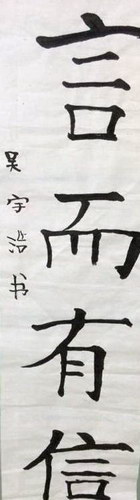 言而有信
吴宇浩书